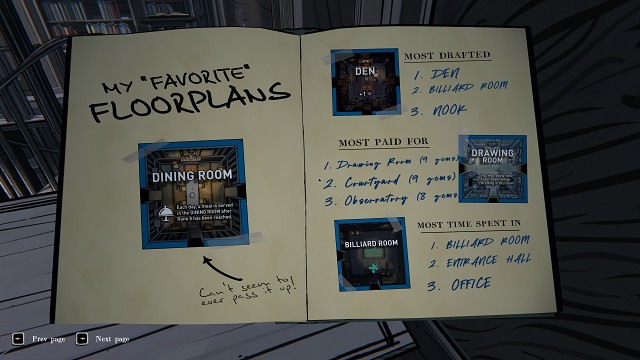 MY "FAVORITE"
FLOORPLANS
DINING ROOM
Each day, a meal is served
in the DINING ROOM after
Rank 8 has been reached
Can't seem to
ever pass it up!
DEN
MOST DRAFTED
1. DEN
2. BILLIARD ROOM
3. NOOK
MOST PAID FOR
1. Drawing Room (9 gems)
2. Courtyard (9 gems)
3. Observatory (8 gems
DRAWING
ROOM
BILLIARD ROOM
MOST TIME SPENT IN
1. BILLIARD ROOM
2. ENTRANCE HALL
3. OFFICE
Prev page
Next page